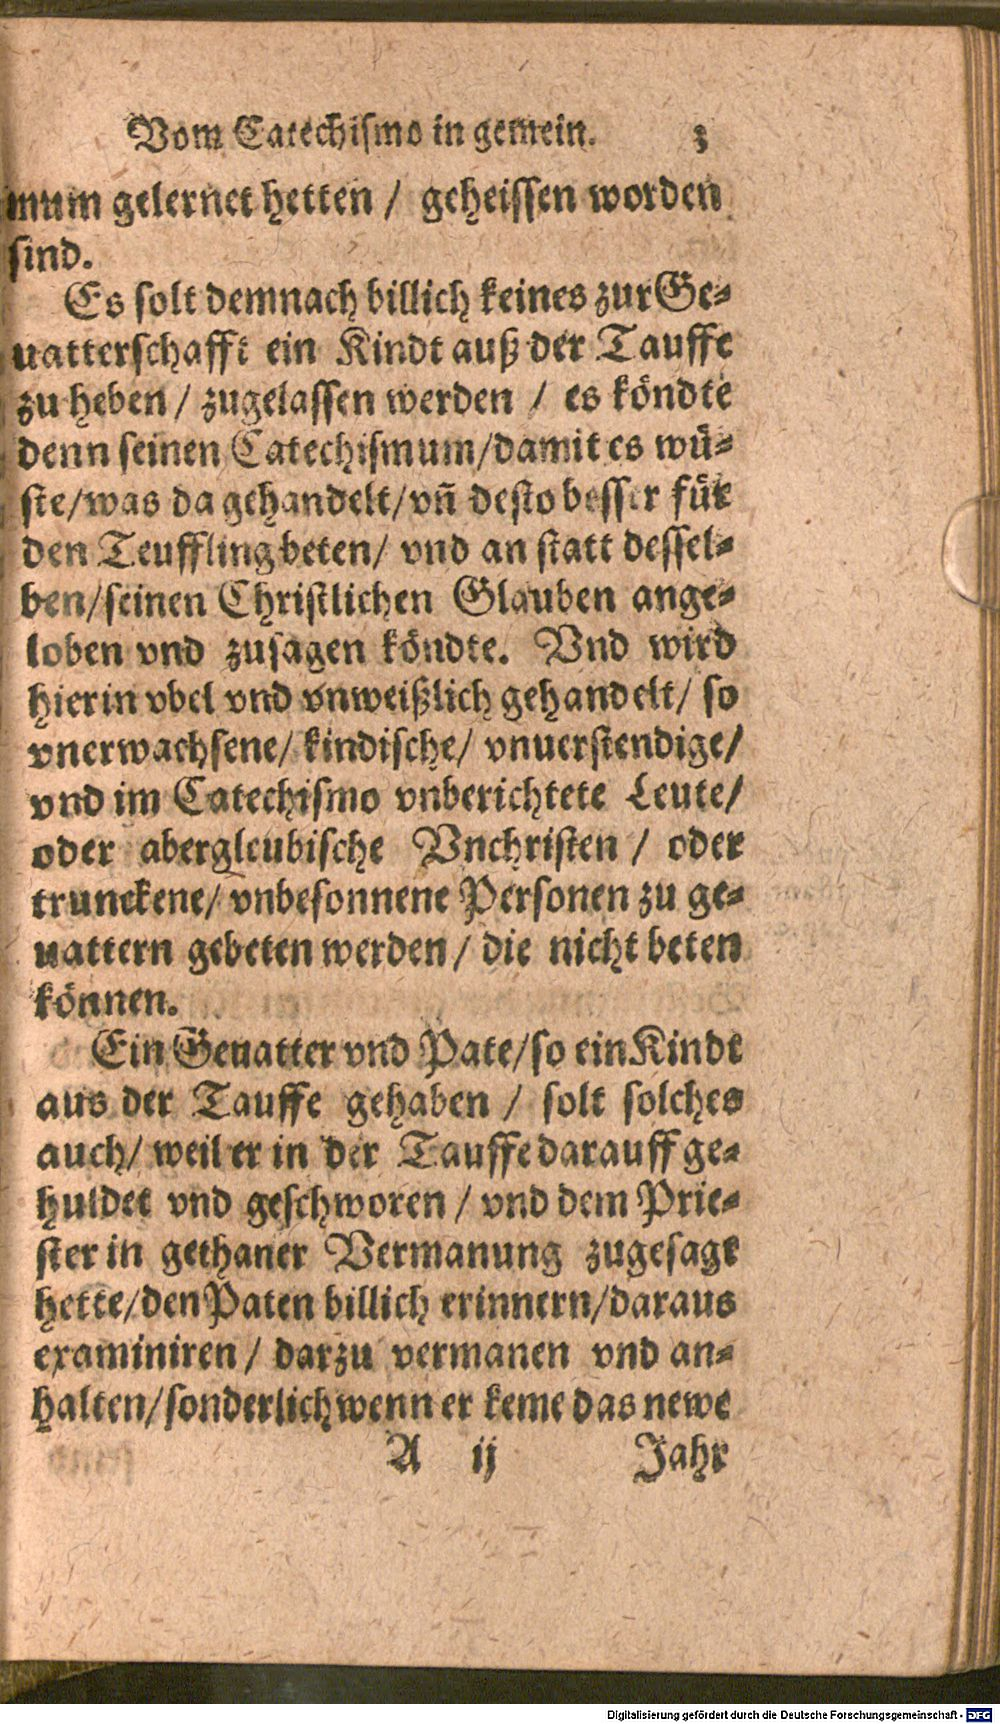 Vom Catechismo in gemein. 3
mum gelernet hetten / geheissen worden
sind.
Es solt demnach billich keines zur Ge⸗
uatterschafft ein Kindt auß der Tauffe
zu heben / zugelassen werden / es köndte
denn seinen Catechismum/damit es wü⸗
ste/was da gehandelt/vñ desto besser für
den Teuffling beten/ vnd an statt dessel⸗
ben/seinen Christlichen Glauben ange⸗
loben vnd zusagen köndte. Vnd wird
hierin vbel vnd vnweißlich gehandelt/ so
vnerwachsene/ kindische/ vnuerstendige/
vnd im Catechismo vnberichtete Leute/
oder abergleubische Vnchristen / oder
trunckene/ vnbesonnene Personen zu ge⸗
uattern gebeten werden / die nicht beten
können.
Ein Geuatter vnd Pate/so ein Kindt
aus der Tauffe gehaben / solt solches
auch/ weil er in der Tauffe darauff ge⸗
huldet vnd geschworen / vnd dem Prie⸗
ster in gethaner Vermanung zugesagt
hette/den Paten billich erinnern/daraus
examiniren / darzu vermanen vnd an⸗
halten/sonderlich wenn er keme das newe
A ij Jahr
Digitalisierung gefördert durch die Deutsche Forschungsgemeinschaft - DFG